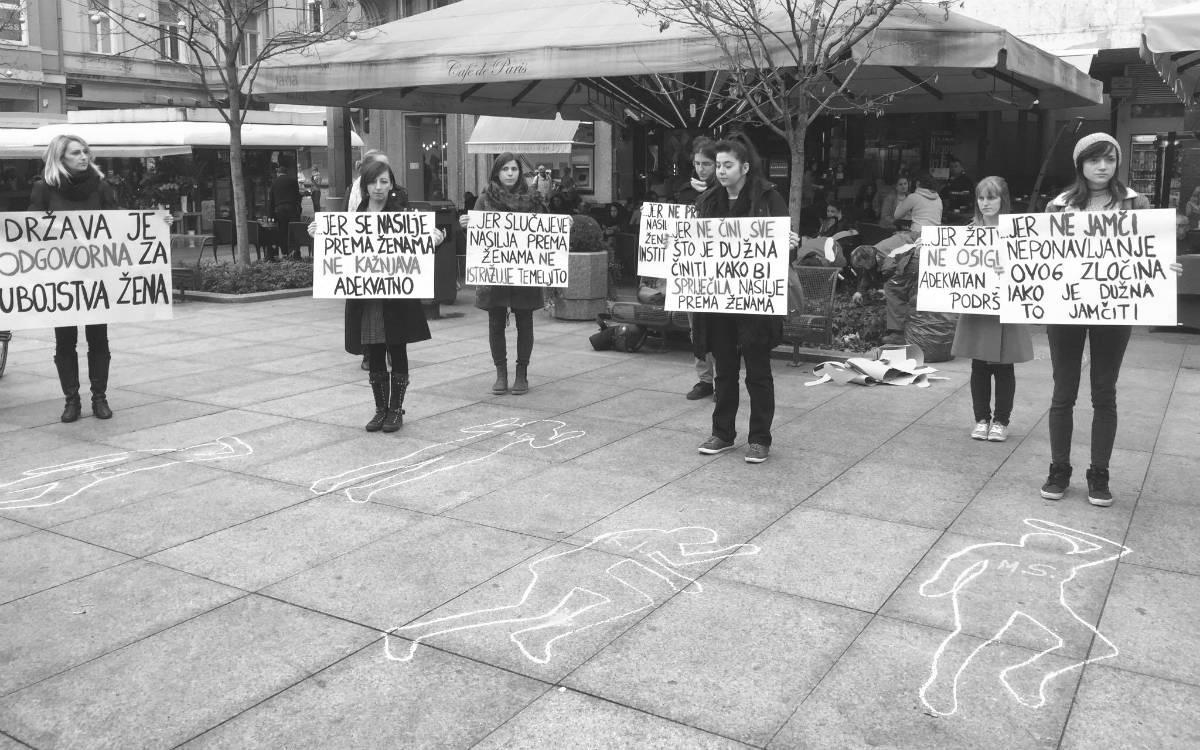 Café de Paris
DRŽAVA JE
ODGOVORNA ZA
UBOJSTVA ŽENA
JER SE NASILJE
PREMA ŽENAMA
NE KAŽNJAVA
ADEKVATNO
JER SLUČAJEVE
NASILJA PREMA
ŽENAMA NE
ISTRAŽUJE TEMELJITO
JER NE
JER NE ČINI SVE
ŠTO JE DUŽNA
ČINITI, KAKO BI
SPRIJEČILA NASILJE
PREMA ŽENAMA
...JER
NE
ADEKVATAN
...JER NE JAMČI
NEPONAVLJANJE
OVOG ZLOČINA
IAKO JE DUŽNA
TO JAMČITI
M.S.